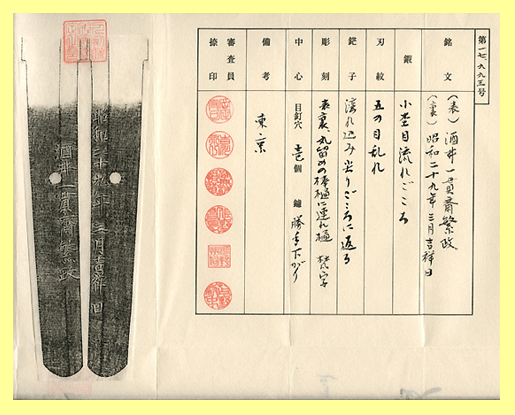 第一七、九九三号
銘文
(表) 酒井一貫斎繁政
(裏) 昭和二十九年三月吉祥日
鍛
小杢目流れごころ
刃紋
五の目乱れ
鋩子
湾れ込み尖りごころに返る
彫刻
表裏、丸留めの棒樋に連れ樋 梵字
中心
目釘穴 壱個 鑢 勝手下がり
備考
東京
審査員
捺印
昭和二十九年三月吉祥日
酒井一貫斎繁政